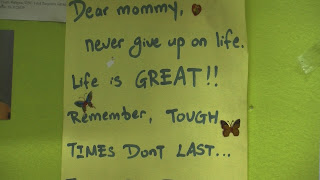 Dear mommy,
never give up on life.
Life is GREAT!!
Remember, TOUGH
TIMES DONT LAST...